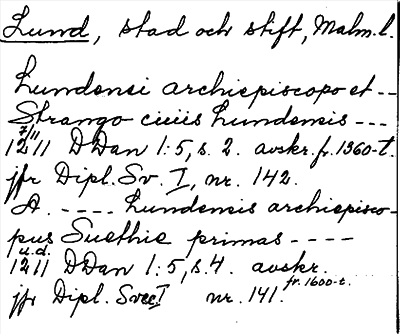 Lund, stad och stift, Malm.l.
Lundensi archiepiscopo et --
Strango ciuis Lundensis ---
12 7/11 11 DDan 1:5, s. 2. avskr. fr. 1360-t.
jfr Dipl. Sv. I, nr. 142.
A. ---- Lundensis archiepisco-
pus Suethie primas ----
u.d.
1211 DDan 1:5, s. 4. avskr.
fr. 1600-t.
jfr Dipl. Svec I nr. 141.